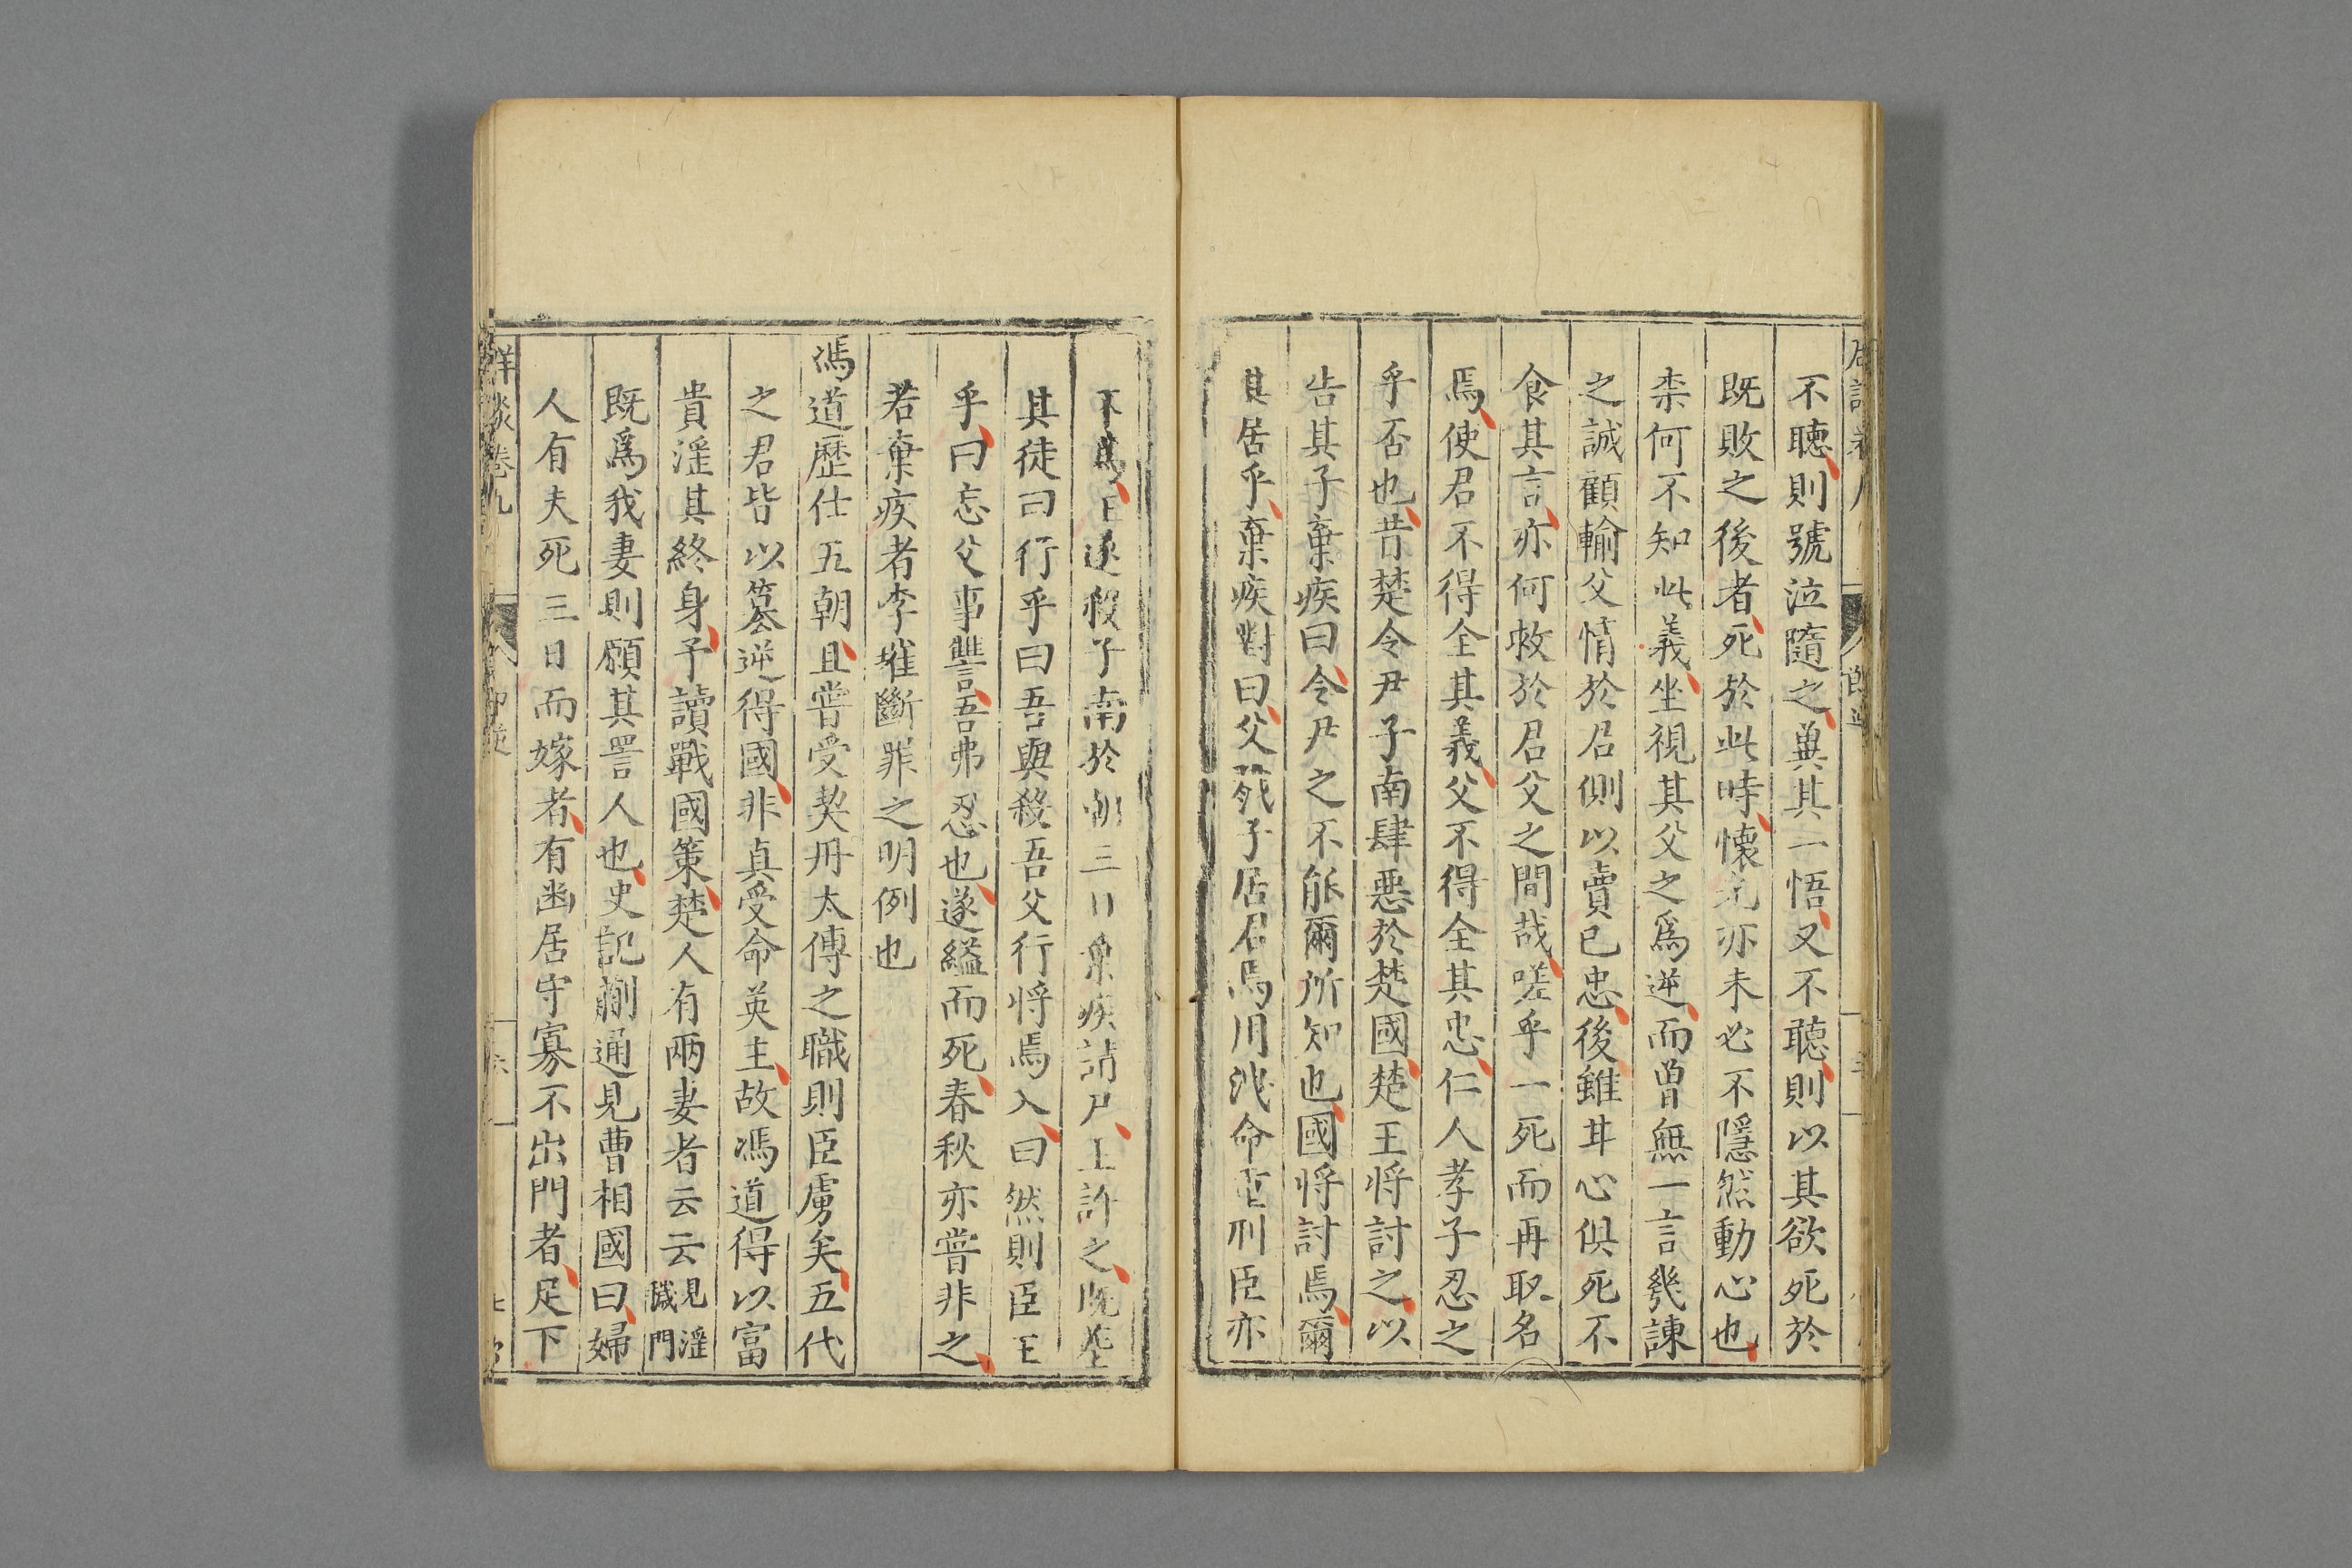 不聽則號泣隨之兾其一悟又不聽則以其欲死於
既敗之後者死於此時懷光亦未必不隱然動心也
柰何不知此義坐視其父之爲逆而曾無一言幾諫
之誠顧輸父情於君側以賣已忠後雖甘心俱死不
食其言亦何救於君父之間哉嗟乎一死而再取名
焉使君不得全其義父不得全其忠仁人孝子忍之
乎否也昔楚令尹子南肆惡於楚國楚王將討之以
告其子棄疾曰令尹之不能爾所知也國將討焉爾
其居乎棄疾對曰父戮子居君焉用洩命重刑臣亦
不爲王遂殺子南於朝三日棄疾請尸王許之既塟
其徒曰行乎曰吾與殺吾父行將焉入曰然則臣王
乎曰忘父事讐吾弗忍也遂縊而死春秋亦嘗非之
若棄疾者李璀斷罪之明例也
馮道歷仕五朝且嘗受契丹太傅之職則臣虜矣五代
之君皆以簒逆得國非真受命英主故馮道得以富
貴滛其終身予讀戰國策楚人有兩妻者云云見滛穢門
既爲我妻則願其詈人也史記蒯通見曹相國曰婦
人有夫死三日而嫁者有幽居守寡不出門者足下
祥談卷九